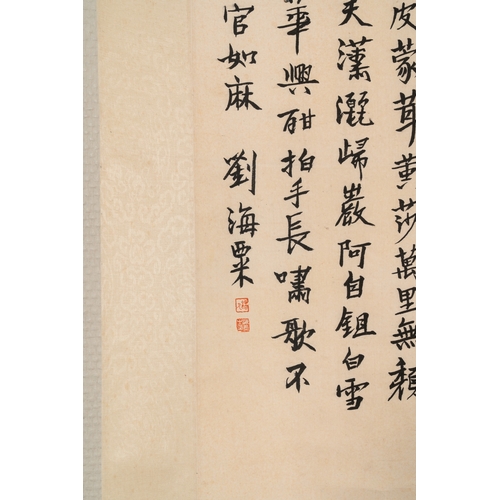 皮蒙茸黄莎萬里無
天瀟灑歸巖阿自鉏白雪
華興酣拍手長嘯歌不
官如麻 劉海粟